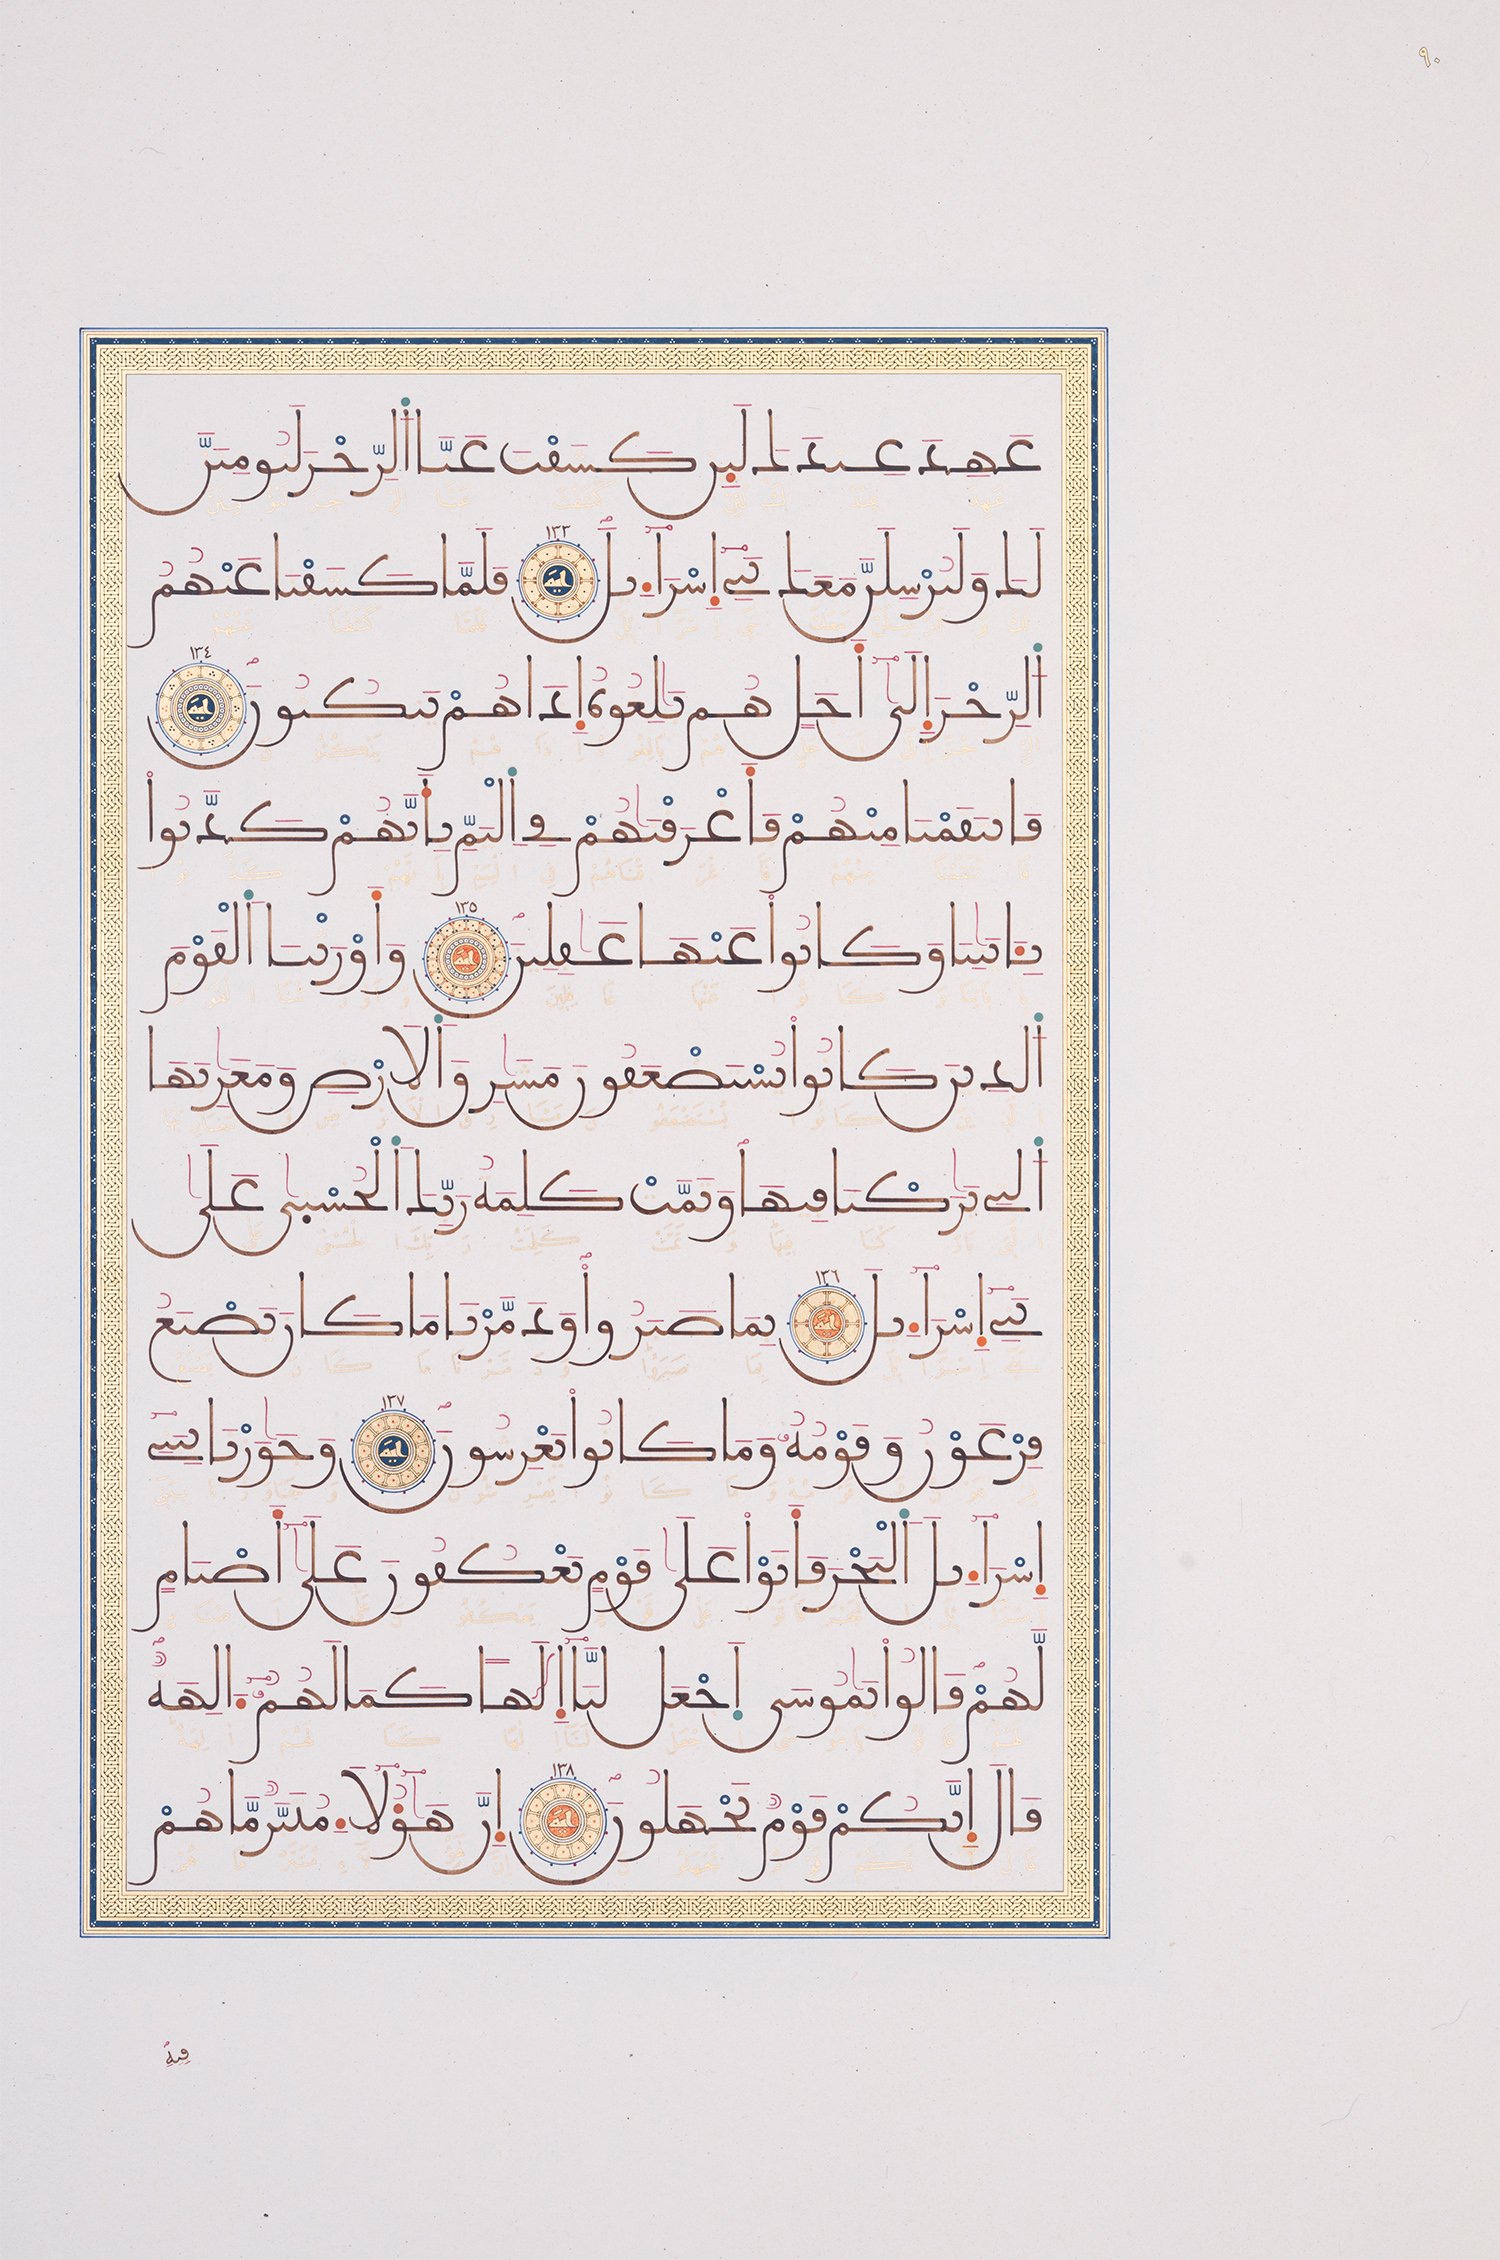 ٩٠
عَهِدَ عِندَكَ لَئِن كَشَفْتَ عَنَّا ٱلرِّجْزَ لَنُومِنَنَّ
لَكَ وَلَنُرْسِلَنَّ مَعَكَ بَنِىٓ إِسْرَآءِيلَ ١٣٣ فَلَمَّا كَشَفْنَا عَنْهُمُ
ٱلرِّجْزَ إِلَىٰٓ أَجَلٍ هُم بَٰلِغُوهُ إِذَا هُمْ يَنكُثُونَ ١٣٤
فَانتَقَمْنَا مِنْهُمْ فَأَغْرَقْنَٰهُمْ فِى ٱلْيَمِّ بِأَنَّهُمْ كَذَّبُوا
بِـَٔايَٰتِنَا وَكَانُوا عَنْهَا غَٰفِلِينَ ١٣٥ وَأَوْرَثْنَا ٱلْقَوْمَ
ٱلذِينَ كَانُوا يُسْتَضْعَفُونَ مَشَٰرِقَ ٱلَارْضِ وَمَغَٰرِبَهَا
ٱلتِى بَٰرَكْنَا فِيهَا وَتَمَّتْ كَلِمَةُ رَبِّكَ ٱلْحُسْنَىٰ عَلَىٰ
بَنِىٓ إِسْرَآءِيلَ ١٣٦ بِمَا صَبَرُوا وَدَمَّرْنَا مَا كَانَ يَصْنَعُ
فِرْعَوْنُ وَقَوْمُهُۥ وَمَا كَانُوا يَعْرِشُونَ ١٣٧ وَجَٰوَزْنَا بِبَنِىٓ
إِسْرَآءِيلَ ٱلْبَحْرَ فَأَتَوْا عَلَىٰ قَوْمٍ يَعْكُفُونَ عَلَىٰٓ أَصْنَامٍ
لَّهُمْ قَالُوا يَٰمُوسَى ٱجْعَل لَّنَآ إِلَٰهًا كَمَا لَهُمُۥٓ ءَالِهَةٌ
قَالَ إِنَّكُمْ قَوْمٌ تَجْهَلُونَ ١٣٨ إِنَّ هَٰٓؤُلَآءِ مُتَبَّرٌ مَّا هُمْ
فِيهِ